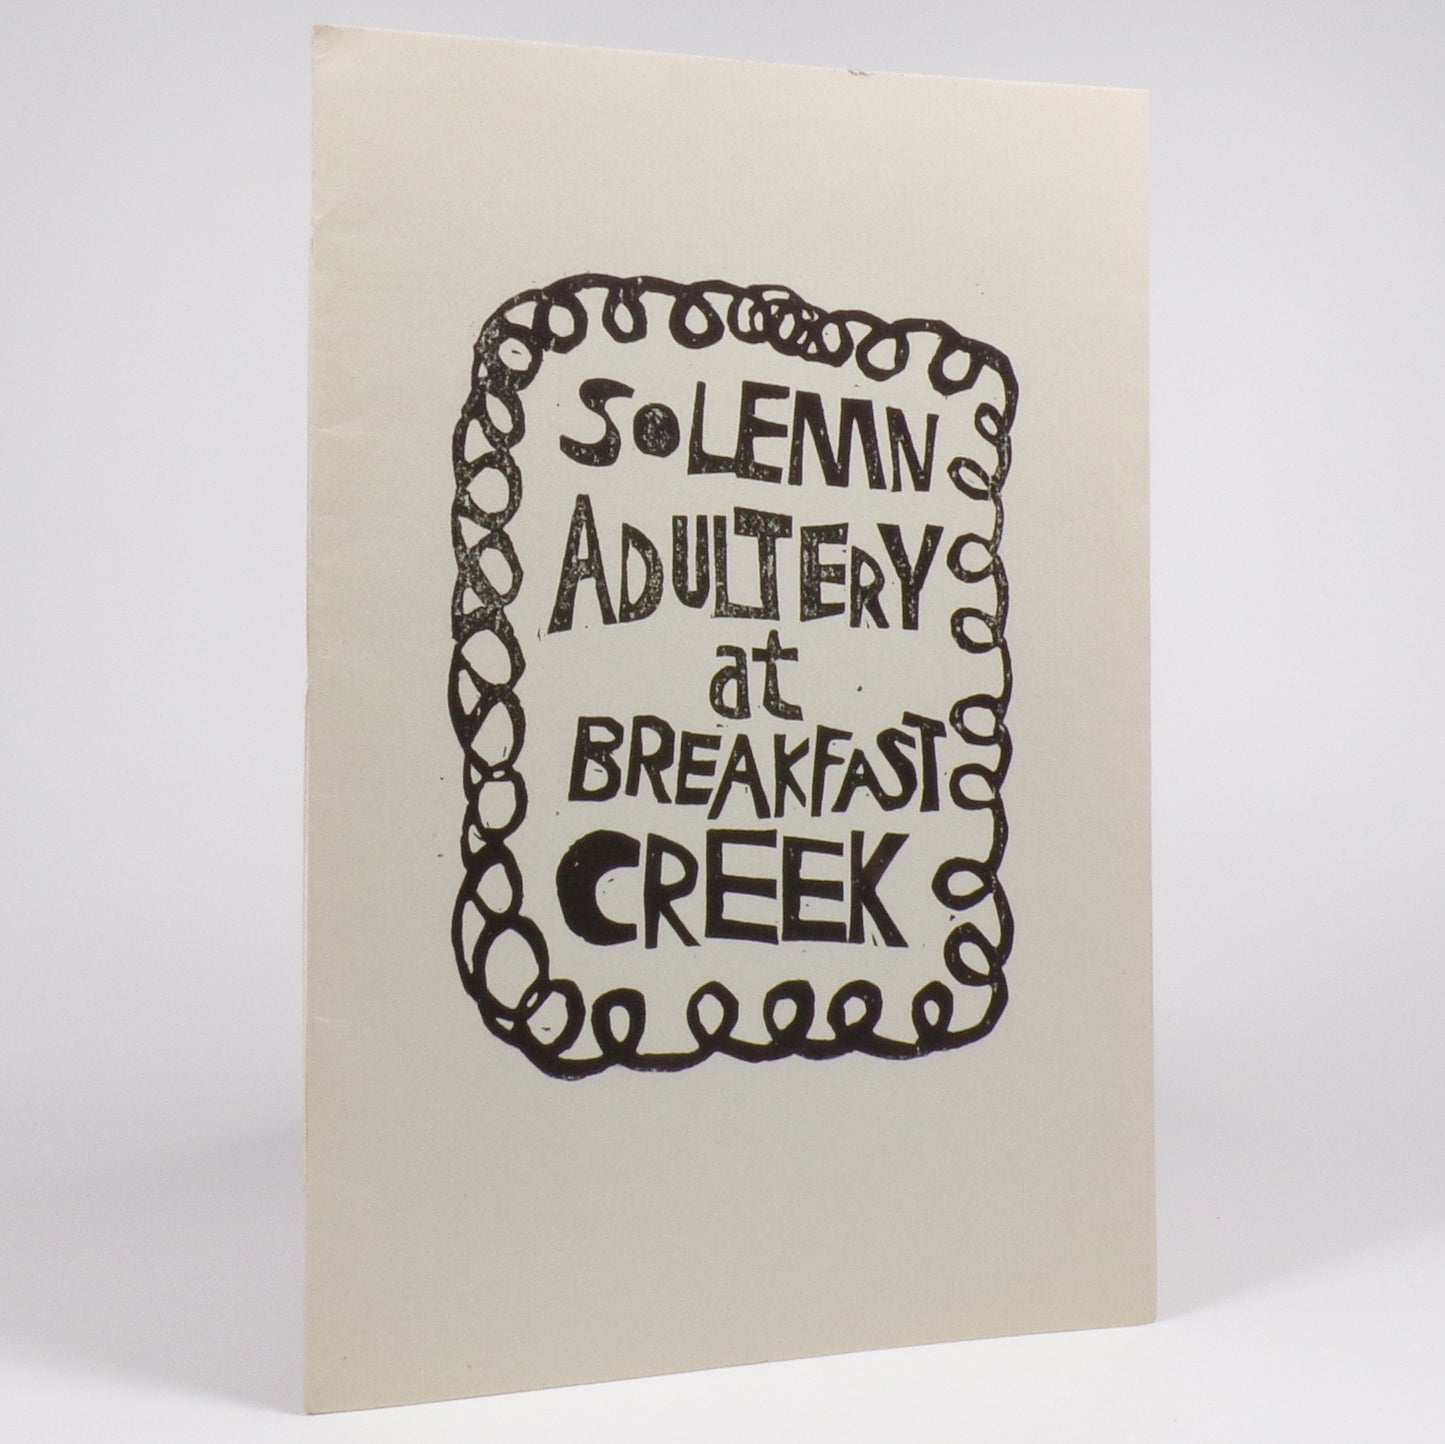 SOLEMN
ADULTERY
at
BREAKFAST
CREEK